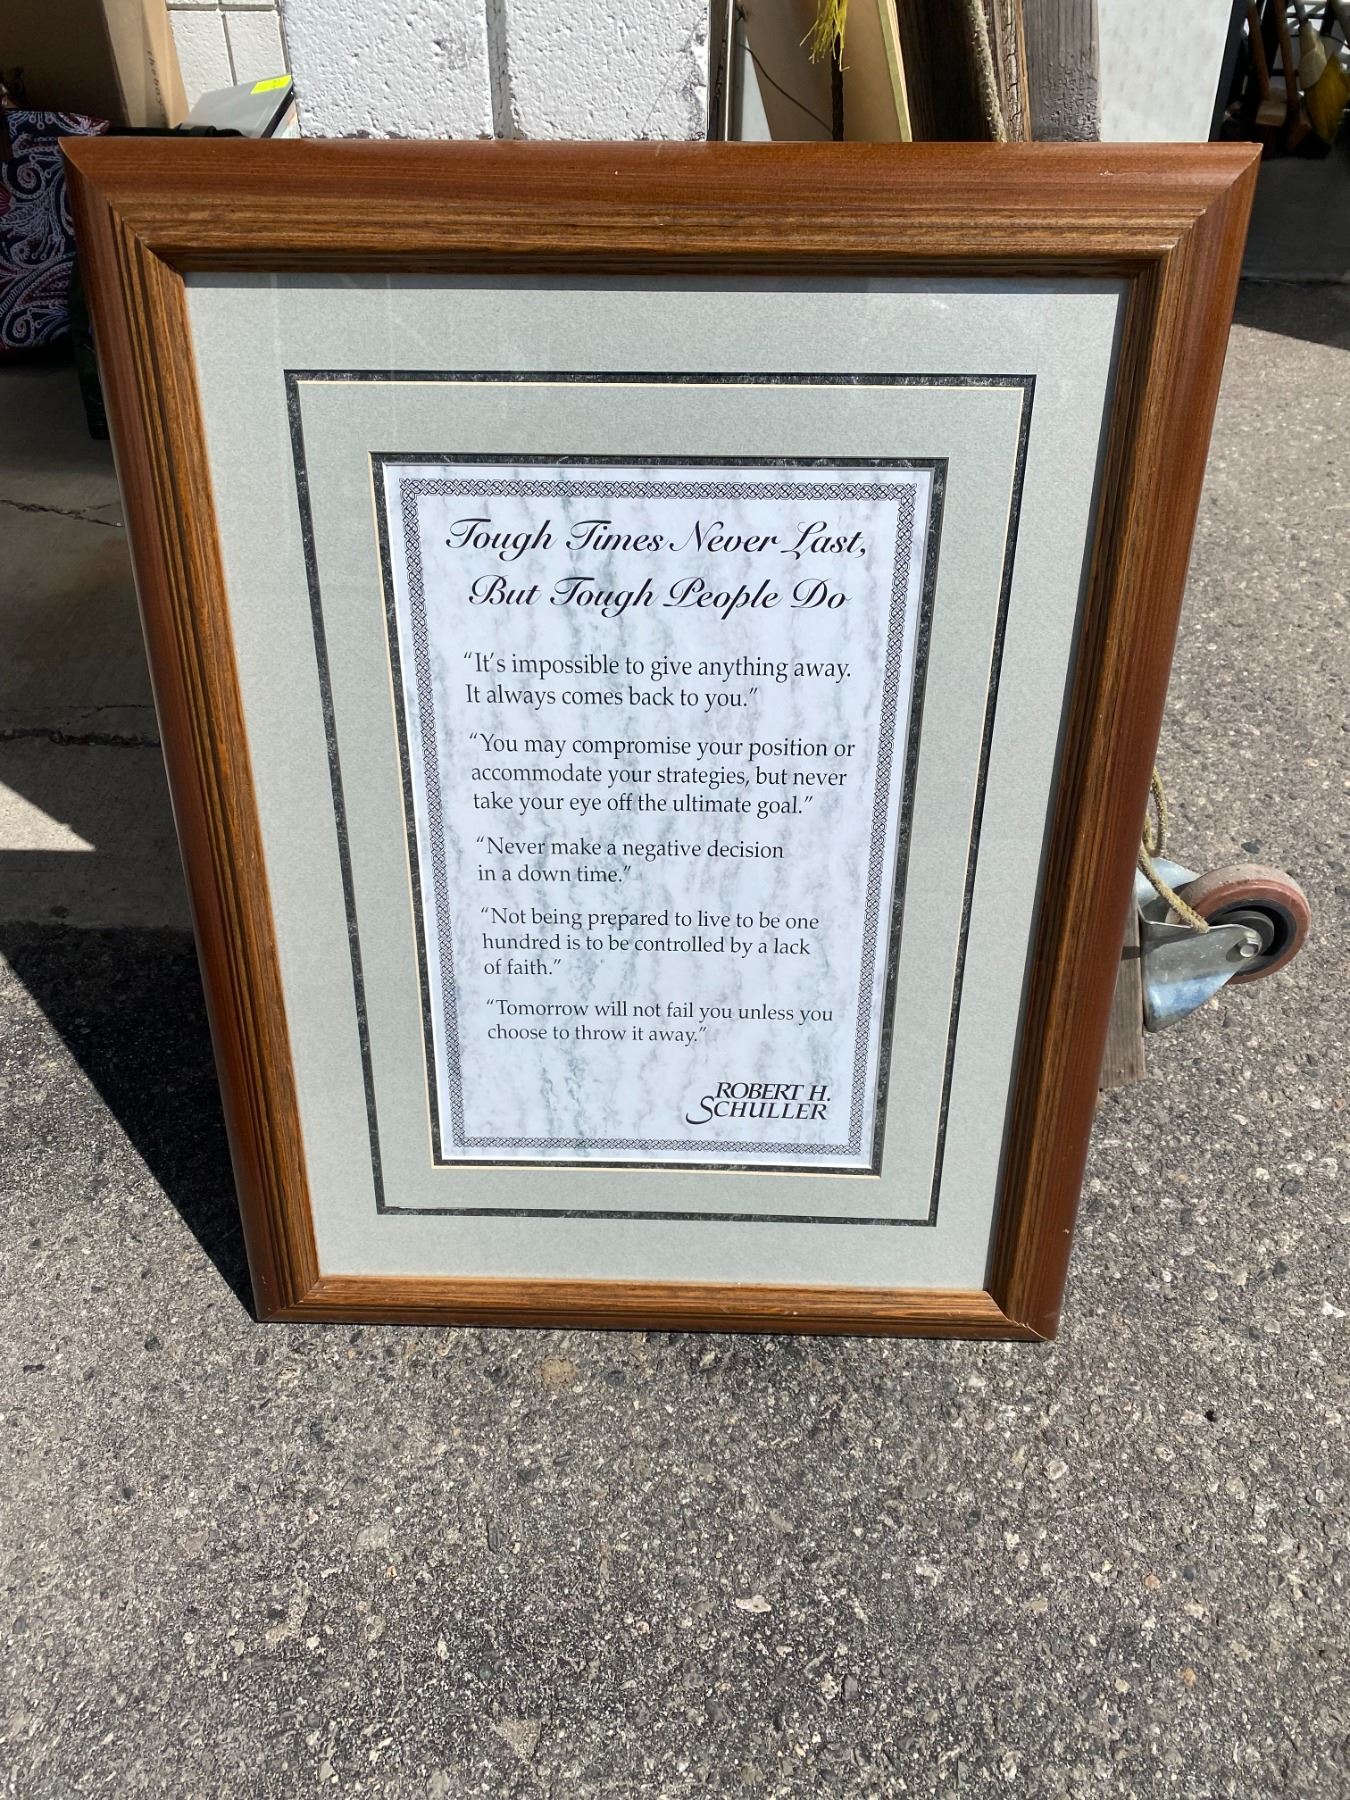 Tough Times Never Last,
But Tough People Do
“It’s impossible to give anything away.
It always comes back to you.”
“You may compromise your position or
accommodate your strategies, but never
take your eye off the ultimate goal.”
“Never make a negative decision
in a down time.”
“Not being prepared to live to be one
hundred is to be controlled by a lack
of faith.”
“Tomorrow will not fail you unless you
choose to throw it away.”
ROBERT H.
SCHULLER